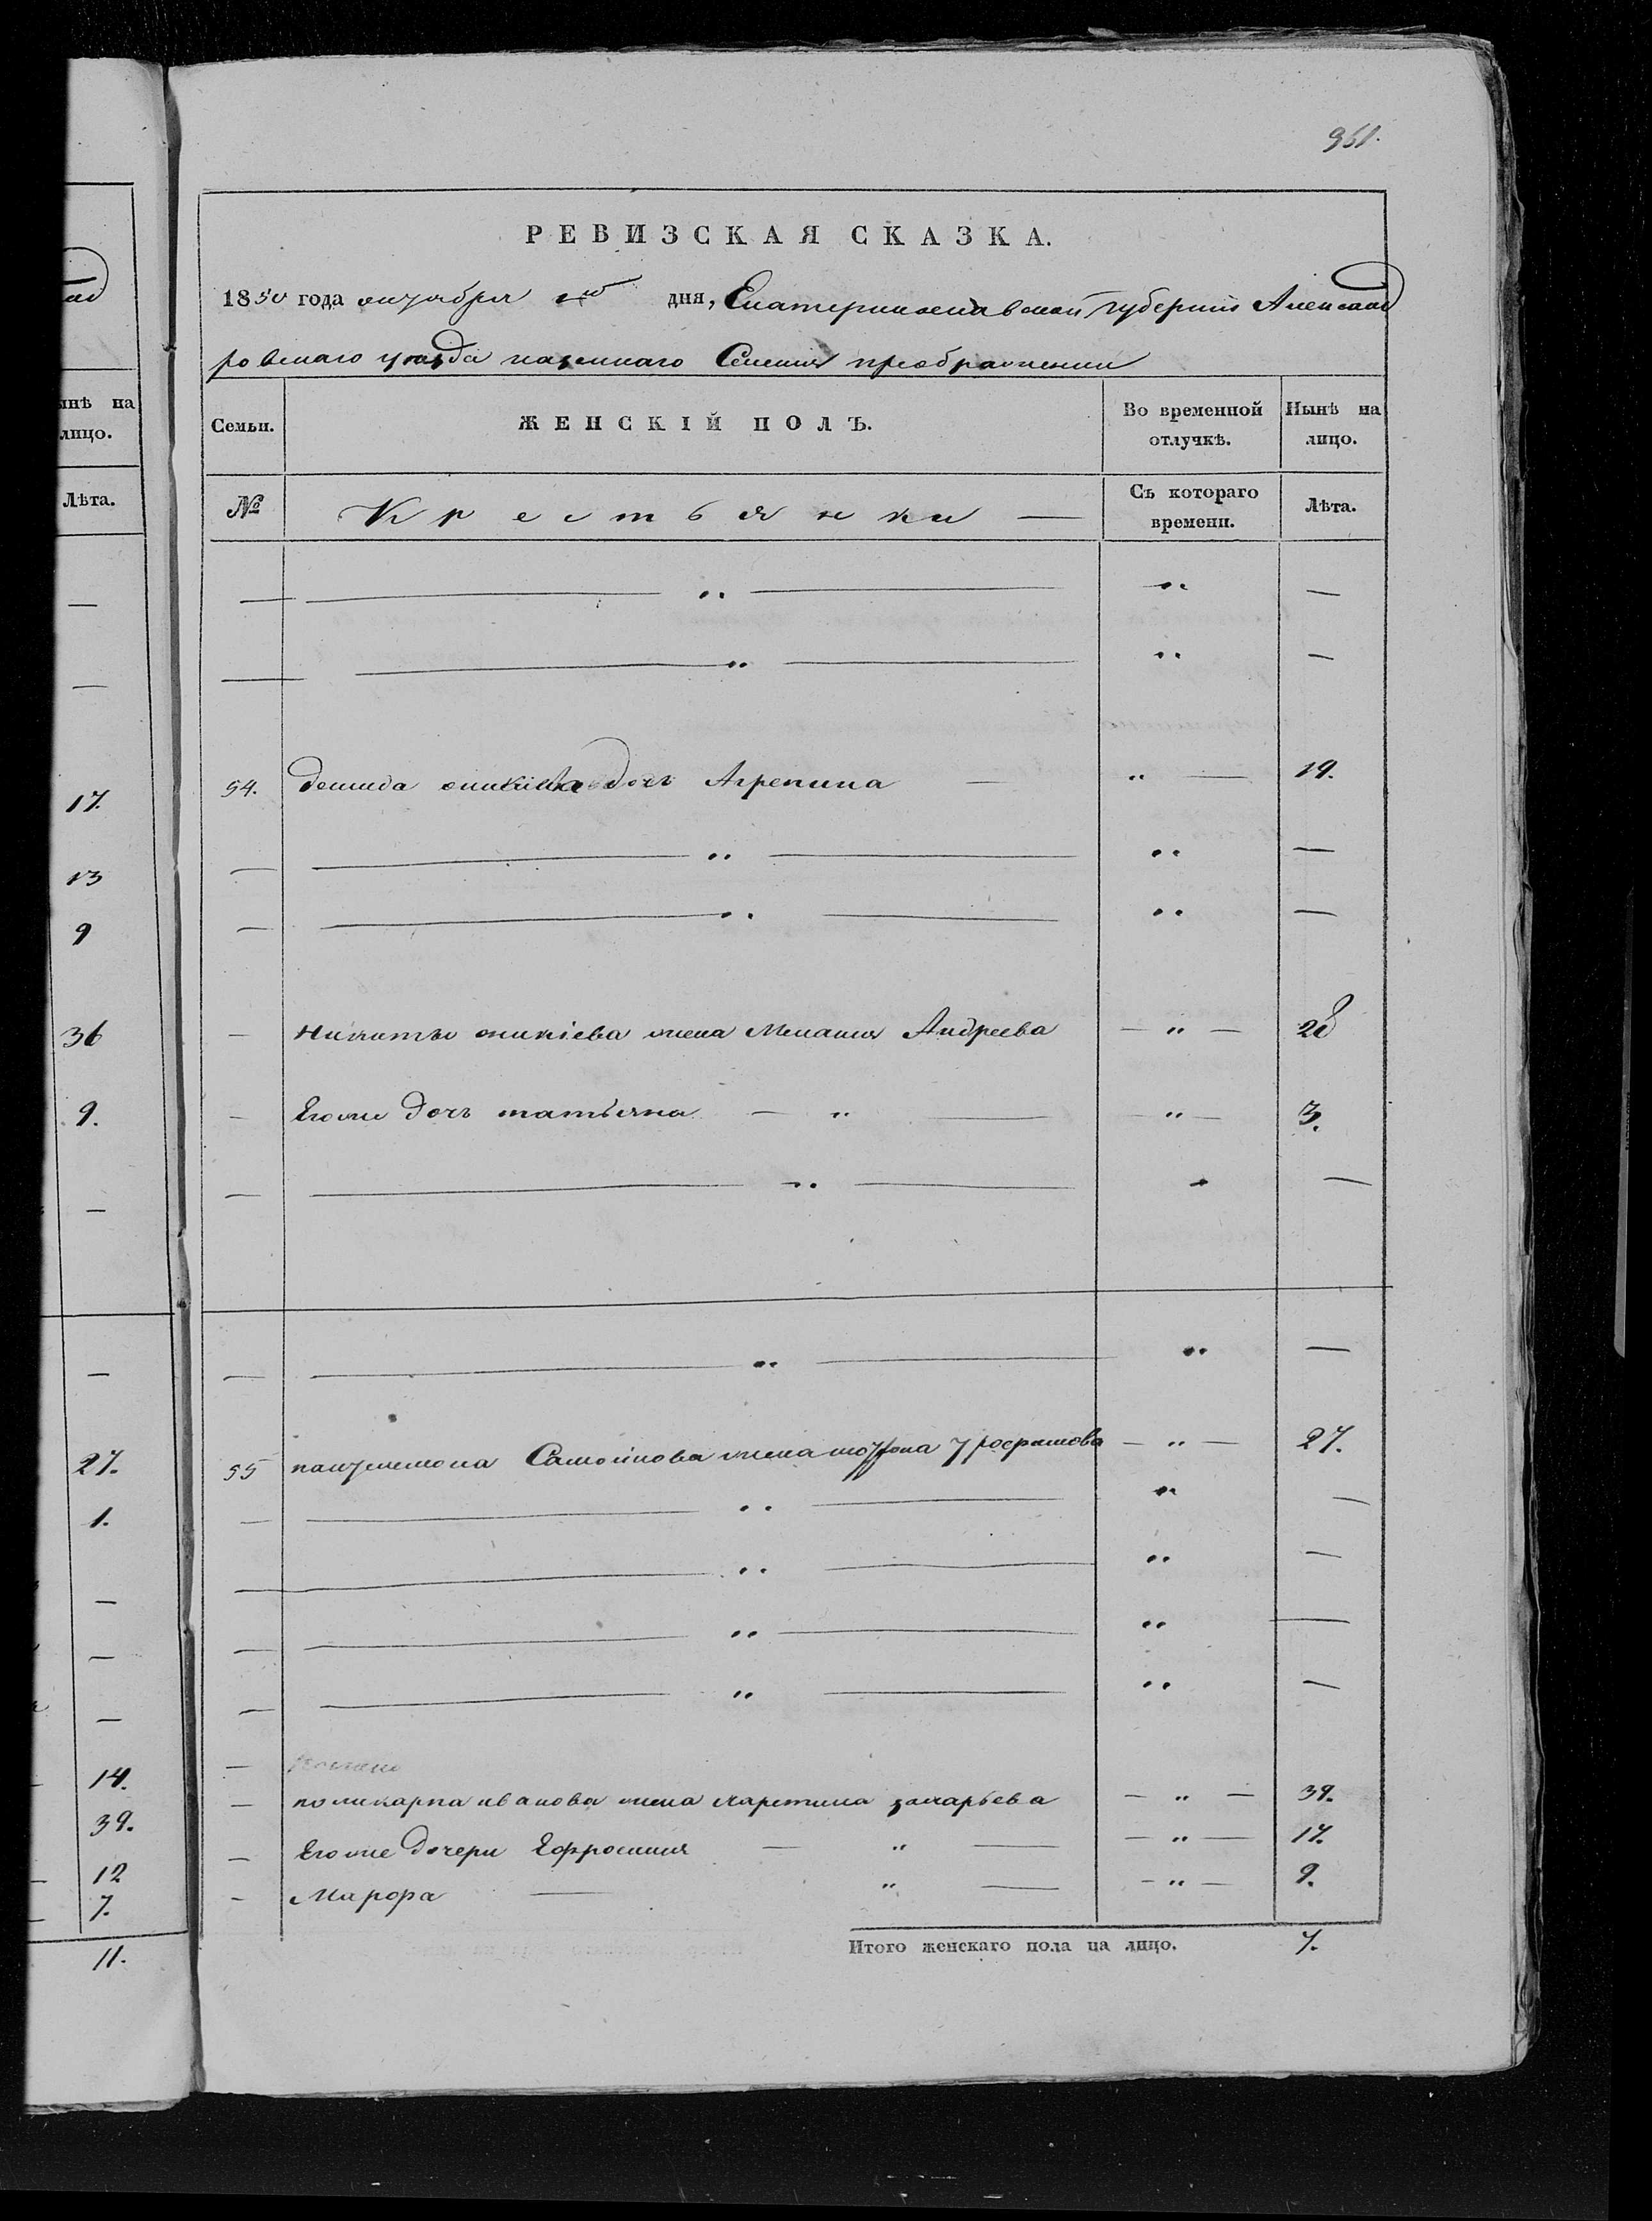 961.
РЕВИЗСКАЯ СКАЗКА.
1850 года октября дня, Екатеринославской губернии Александ
ровскаго уезда казеннаго Селения преображенки
Семьи. ЖЕНСКІЙ ПОЛЪ. Во временной отлучкѣ. Нынѣ на лицо.
№ Крестьянки — Съ котораго времени. Лѣта.
— „ — „ —
— „ — „ —
54. демида оникіева дочь Агрепина — „ — 19.
— „ — „ —
— „ — „ —
— Никиты оникіева жена Мелания Андреева — „ — 28
— Егоже дочь татьяна — „ — „ — 3.
— „ — „ —
— „ — „ —
55 пантелемона Самойлова жена — „ — 27.
— „ — „ —
— „ — „ —
— „ — „ —
— „ — „ —
— поликарпа иванова жена харетина захарьева — „ — 39.
— Егоже дочери Ефросиния — „ — „ — 17.
— Марфа — „ — „ — 9.
Итого женскаго пола на лицо. 7.
нынѣ на
лицо.
Лѣта.
—
—
17.
13
9
36
9.
—
—
27.
1.
—
—
—
14.
39.
12
7.
11.